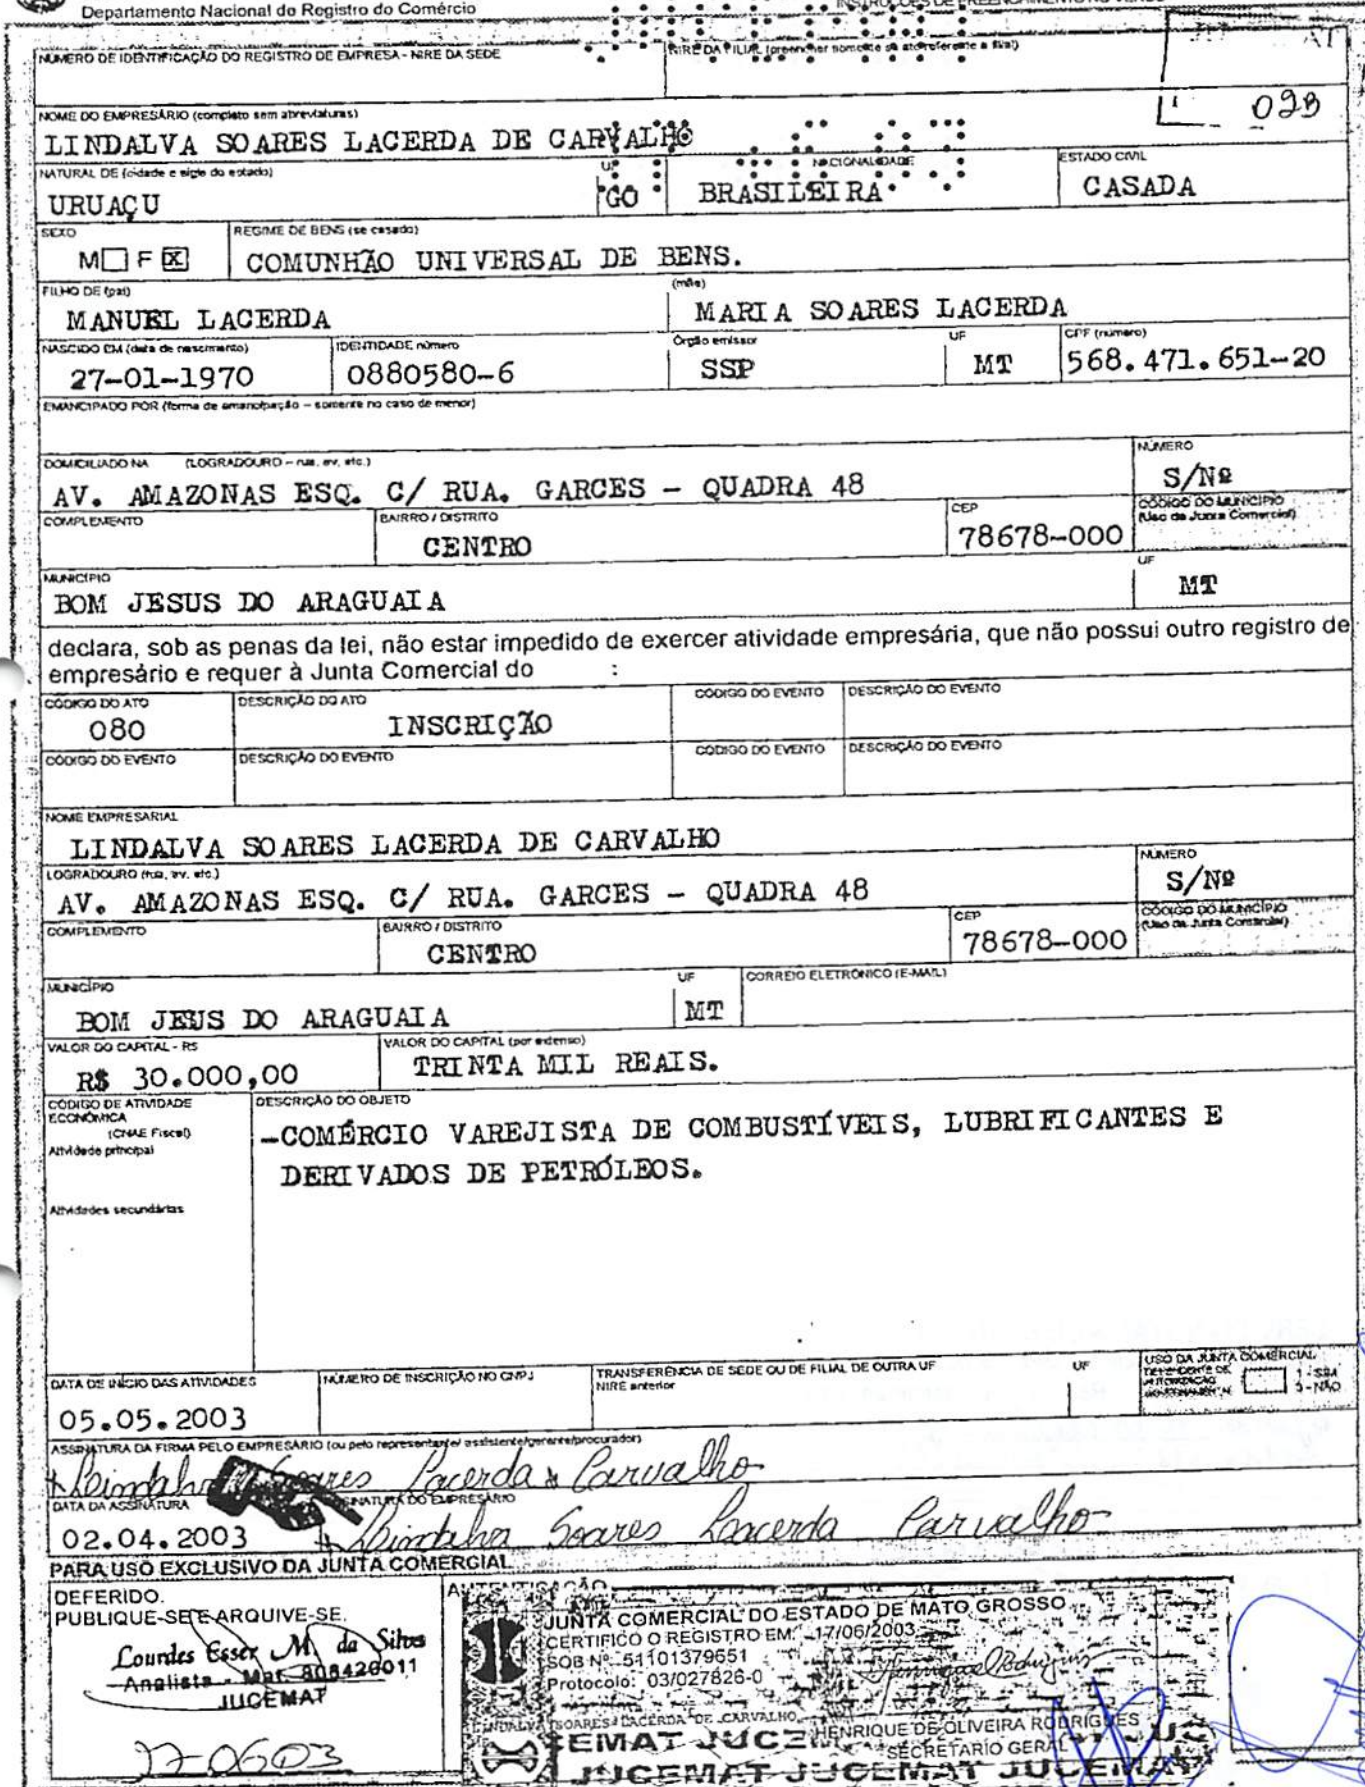 Departamento Nacional do Registro do Comércio
INSTRUÇÕES DE PREENCHIMENTO NO VERSO
NÚMERO DE IDENTIFICAÇÃO DO REGISTRO DE EMPRESA - NIRE DA SEDE
NIRE DA FILIAL (preencher somente se ato referente a filial)
NOME DO EMPRESÁRIO (completo sem abreviaturas)
LINDALVA SOARES LACERDA DE CARVALHO
NATURAL DE (cidade e sigla do estado)
URUAÇU
UF
GO
NACIONALIDADE
BRASILEIRA
ESTADO CIVIL
CASADA
SEXO
M☐ F ☒
REGIME DE BENS (se casado)
COMUNHÃO UNIVERSAL DE BENS.
FILHO DE (pai)
MANUEL LACERDA
(mãe)
MARIA SOARES LACERDA
NASCIDO EM (data de nascimento)
27-01-1970
IDENTIDADE número
0880580-6
Órgão emissor
SSP
UF
MT
CPF (número)
568.471.651-20
EMANCIPADO POR (forma de emancipação – somente no caso de menor)
DOMICILIADO NA (LOGRADOURO – rua, av, etc.)
AV. AMAZONAS ESQ. C/ RUA. GARCES - QUADRA 48
NÚMERO
S/Nº
COMPLEMENTO
BAIRRO / DISTRITO
CENTRO
CEP
78678-000
CÓDIGO DO MUNICÍPIO
(Uso da Junta Comercial)
MUNICÍPIO
BOM JESUS DO ARAGUAIA
UF
MT
declara, sob as penas da lei, não estar impedido de exercer atividade empresária, que não possui outro registro de
empresário e requer à Junta Comercial do :
CÓDIGO DO ATO
080
DESCRIÇÃO DO ATO
INSCRIÇÃO
CÓDIGO DO EVENTO
DESCRIÇÃO DO EVENTO
CÓDIGO DO EVENTO
DESCRIÇÃO DO EVENTO
CÓDIGO DO EVENTO
DESCRIÇÃO DO EVENTO
NOME EMPRESARIAL
LINDALVA SOARES LACERDA DE CARVALHO
LOGRADOURO (rua, av. etc.)
AV. AMAZONAS ESQ. C/ RUA. GARCES - QUADRA 48
NÚMERO
S/Nº
COMPLEMENTO
BAIRRO / DISTRITO
CENTRO
CEP
78678-000
CÓDIGO DO MUNICÍPIO
(Uso da Junta Comercial)
MUNICÍPIO
BOM JEUS DO ARAGUAIA
UF
MT
CORREIO ELETRÔNICO (E-MAIL)
VALOR DO CAPITAL - R$
R$ 30.000,00
VALOR DO CAPITAL (por extenso)
TRINTA MIL REAIS.
CÓDIGO DE ATIVIDADE
ECONÔMICA
(CNAE Fiscal)
Atividade principal
Atividades secundárias
DESCRIÇÃO DO OBJETO
-COMÉRCIO VAREJISTA DE COMBUSTÍVEIS, LUBRIFICANTES E
DERIVADOS DE PETRÓLEOS.
DATA DE INÍCIO DAS ATIVIDADES
05.05.2003
NÚMERO DE INSCRIÇÃO NO CNPJ
TRANSFERÊNCIA DE SEDE OU DE FILIAL DE OUTRA UF
NIRE anterior
UF
USO DA JUNTA COMERCIAL
DEPENDENTE DE
AUTORIZAÇÃO
GOVERNAMENTAL
1 - SIM
3 - NÃO
ASSINATURA DA FIRMA PELO EMPRESÁRIO (ou pelo representante/assistente/gerente/procurador)
Lindalva Soares Lacerda Carvalho
DATA DA ASSINATURA
02.04.2003
ASSINATURA DO EMPRESÁRIO
Lindalva Soares Lacerda Carvalho
PARA USO EXCLUSIVO DA JUNTA COMERCIAL
DEFERIDO.
PUBLIQUE-SE E ARQUIVE-SE.
Lourdes Esser M. da Silva
Analista - Mat. 808426011
JUCEMAT
17-06-03
AUTENTICAÇÃO
JUNTA COMERCIAL DO ESTADO DE MATO GROSSO
CERTIFICO O REGISTRO EM: 17/06/2003
SOB Nº: 51101379651
Protocolo: 03/027826-0
LINDALVA SOARES LACERDA DE CARVALHO
HENRIQUE DE OLIVEIRA RODRIGUES
SECRETARIO GERAL
JUCEMAT JUCEMAT JUCEMAT